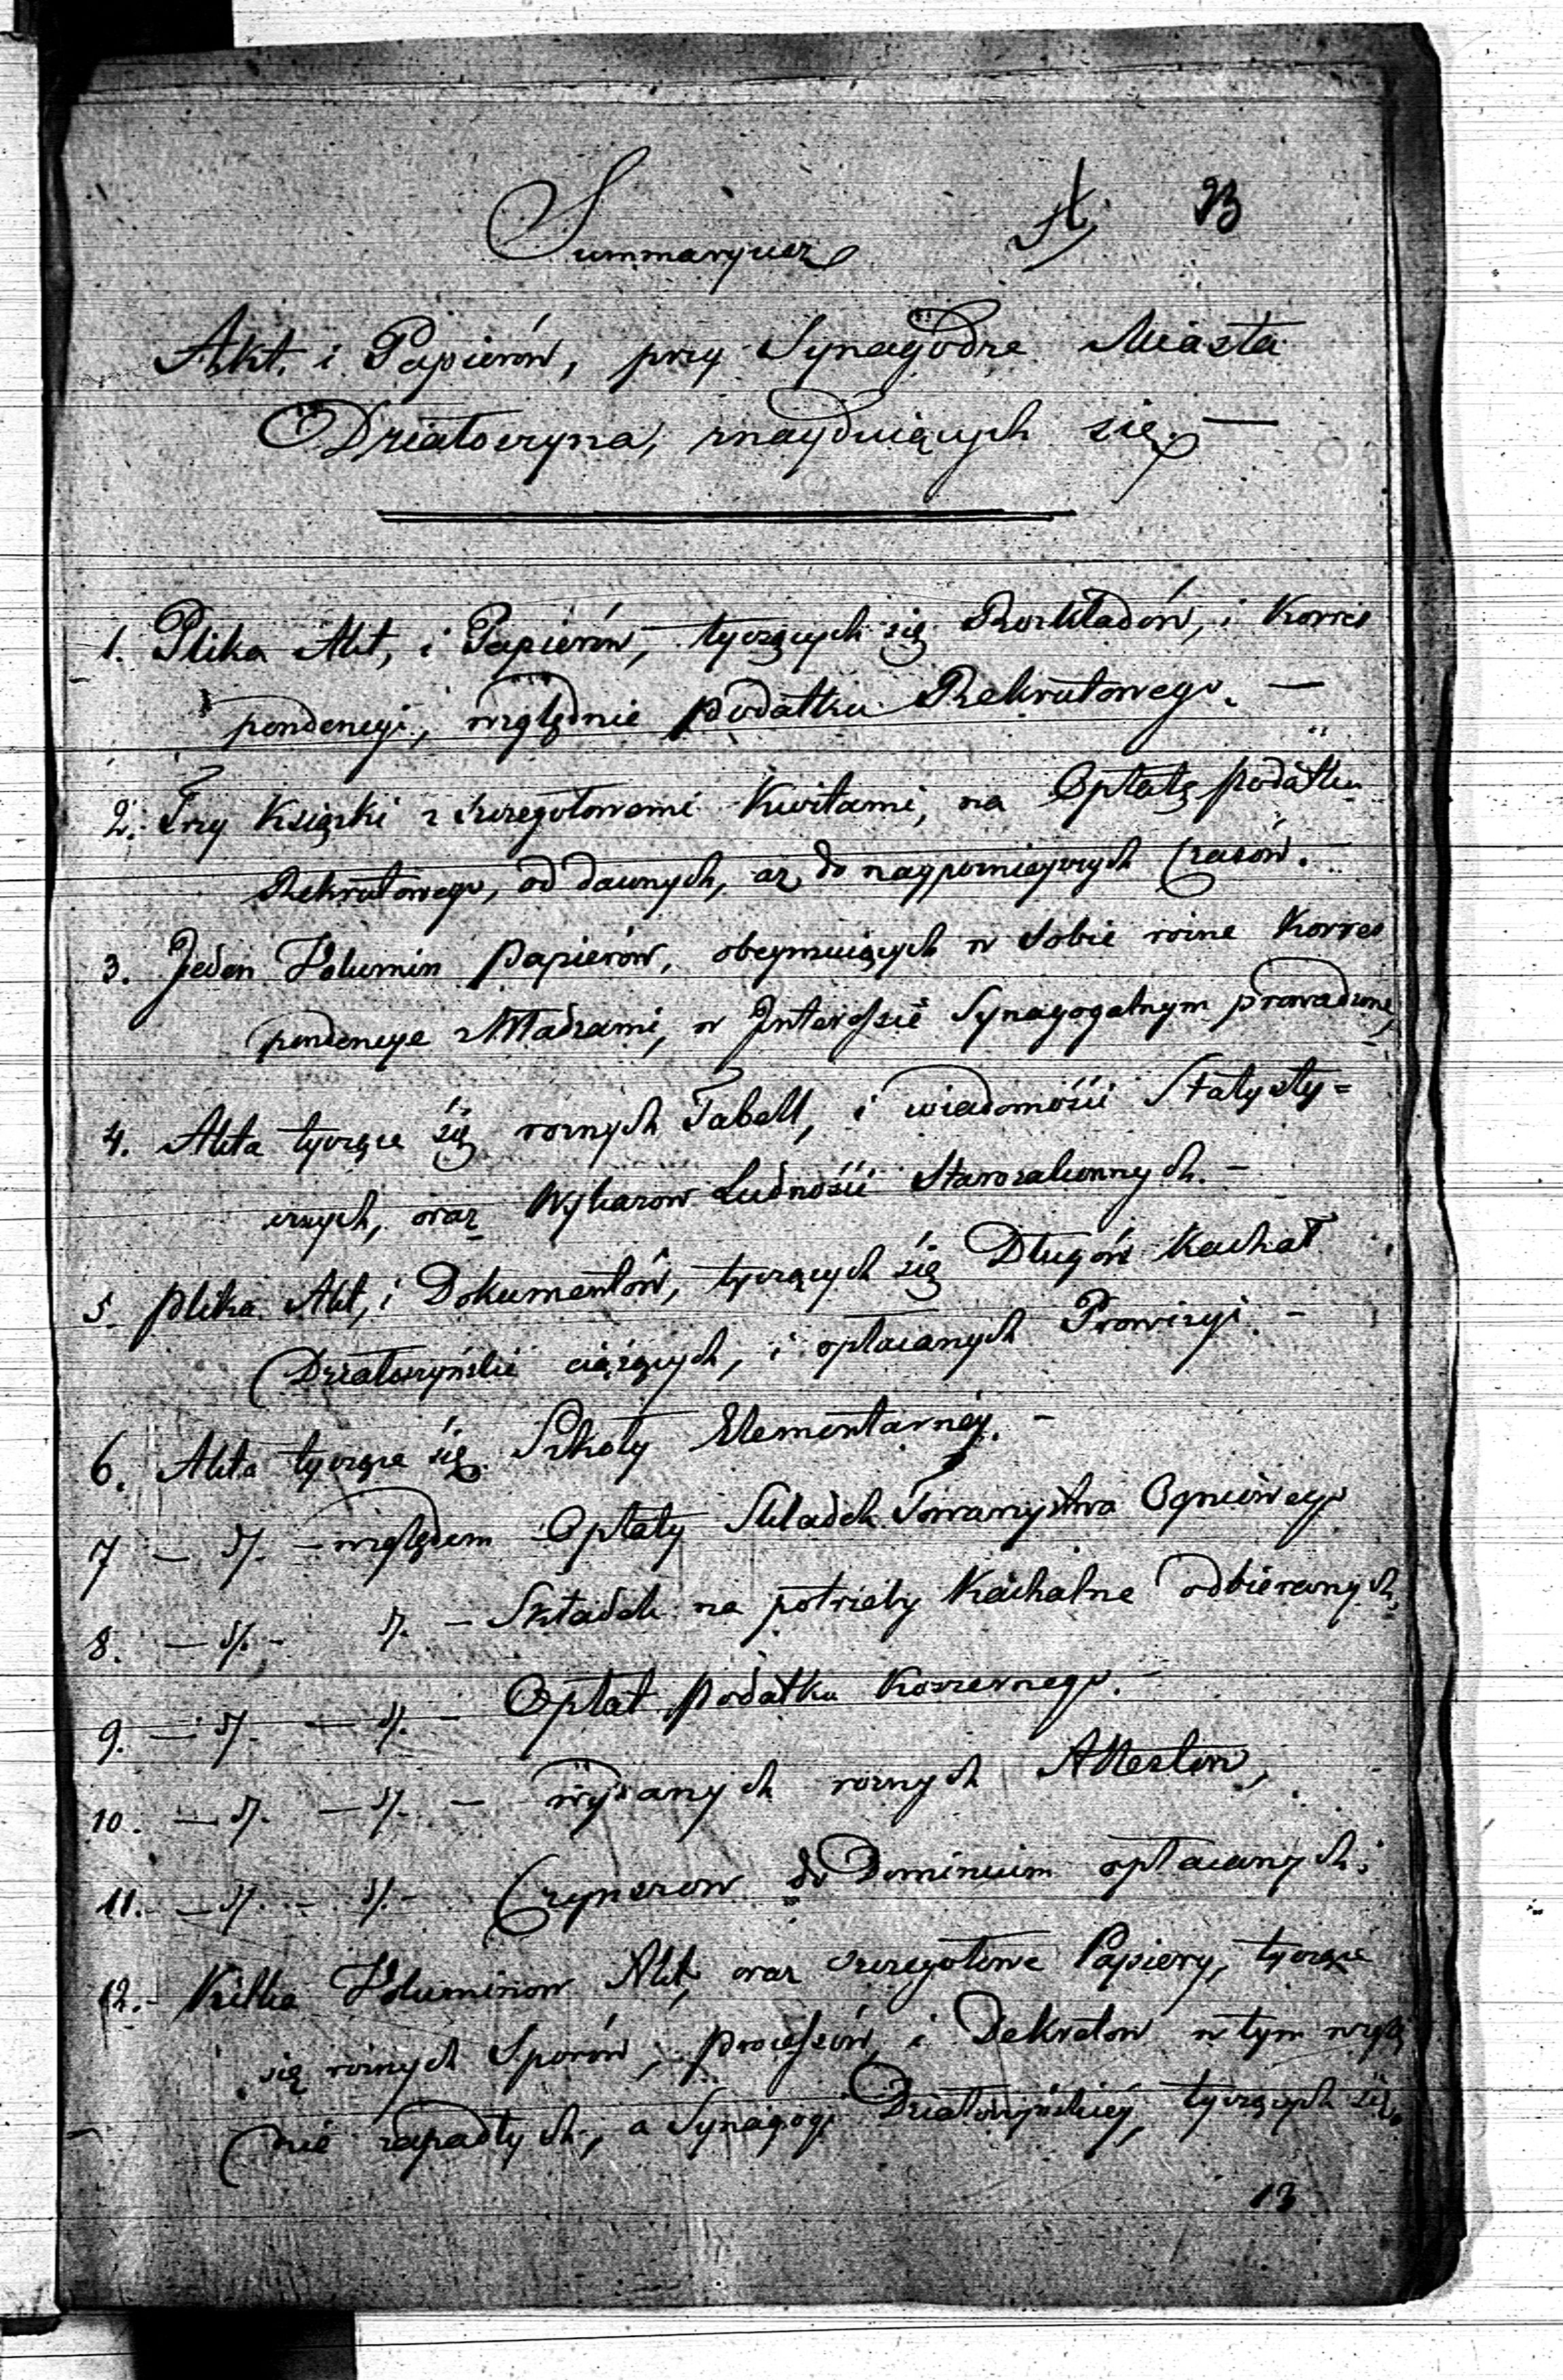 A. 93
Summaryusz
Akt. i Papierów, przy Synagodze Miasta
Działoszyna, znayduiących się. —
1. Plika Akt, i Papierów, tyczących się Rozkładów, i Korres
pondencyi, względnie podatku Rekrutowego. —
2. Trzy Książki z szczegołowemi Kwitami, na Opłatę podatku
Rekrutowego, od dawnych, aż do naypoznieyszych Czasów. —
3. Jeden Wolumin Papierów, obeymuiących w sobie rożne Korres
pondencye z Władzami, w Interessie Synagogalnym prowadzone,
4. Akta tyczące się roznych Tabell, i wiadomości Statysty=
cznych, oraz Wykazow Ludności Starozakonnych. —
5. Plika Akt, i Dokumentów, tyczących się Długów Kachał
Działoszyński ciążących, i opłacanych Prowizyi. —
6. Akta tyczące się Szkoły Elementarnéy. —
7 — d/. — względem Opłaty Składek Towarzystwa Ogniowego
8. — d/. — d/. — Składek na potrzeby Kachalne odbieranych,
9. — d/. — d/. — Opłat podatku Koszernego. —
10. — d/. — d/. — wydanych roznych Attestow,
11. — d/. — d/. — Czynszow do Dominium opłacanych.
12. Kilka Woluminow Akt, oraz szczegołowe Papiery, tyczące
się roznych Sporów, processów, i Dekretow w tym wzglę
dnie zapadłych, a Synagogi Działoszyńskiey, tyczących się.
13